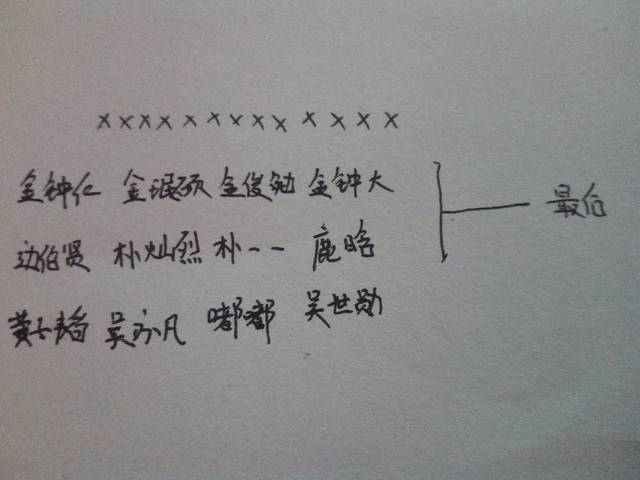 ×××××××××××××
金钟仁 金珉硕 金俊勉 金钟大
边伯贤 朴灿烈 朴一一 鹿晗
黄子韬 吴亦凡 嘟嘟 吴世勋
最后